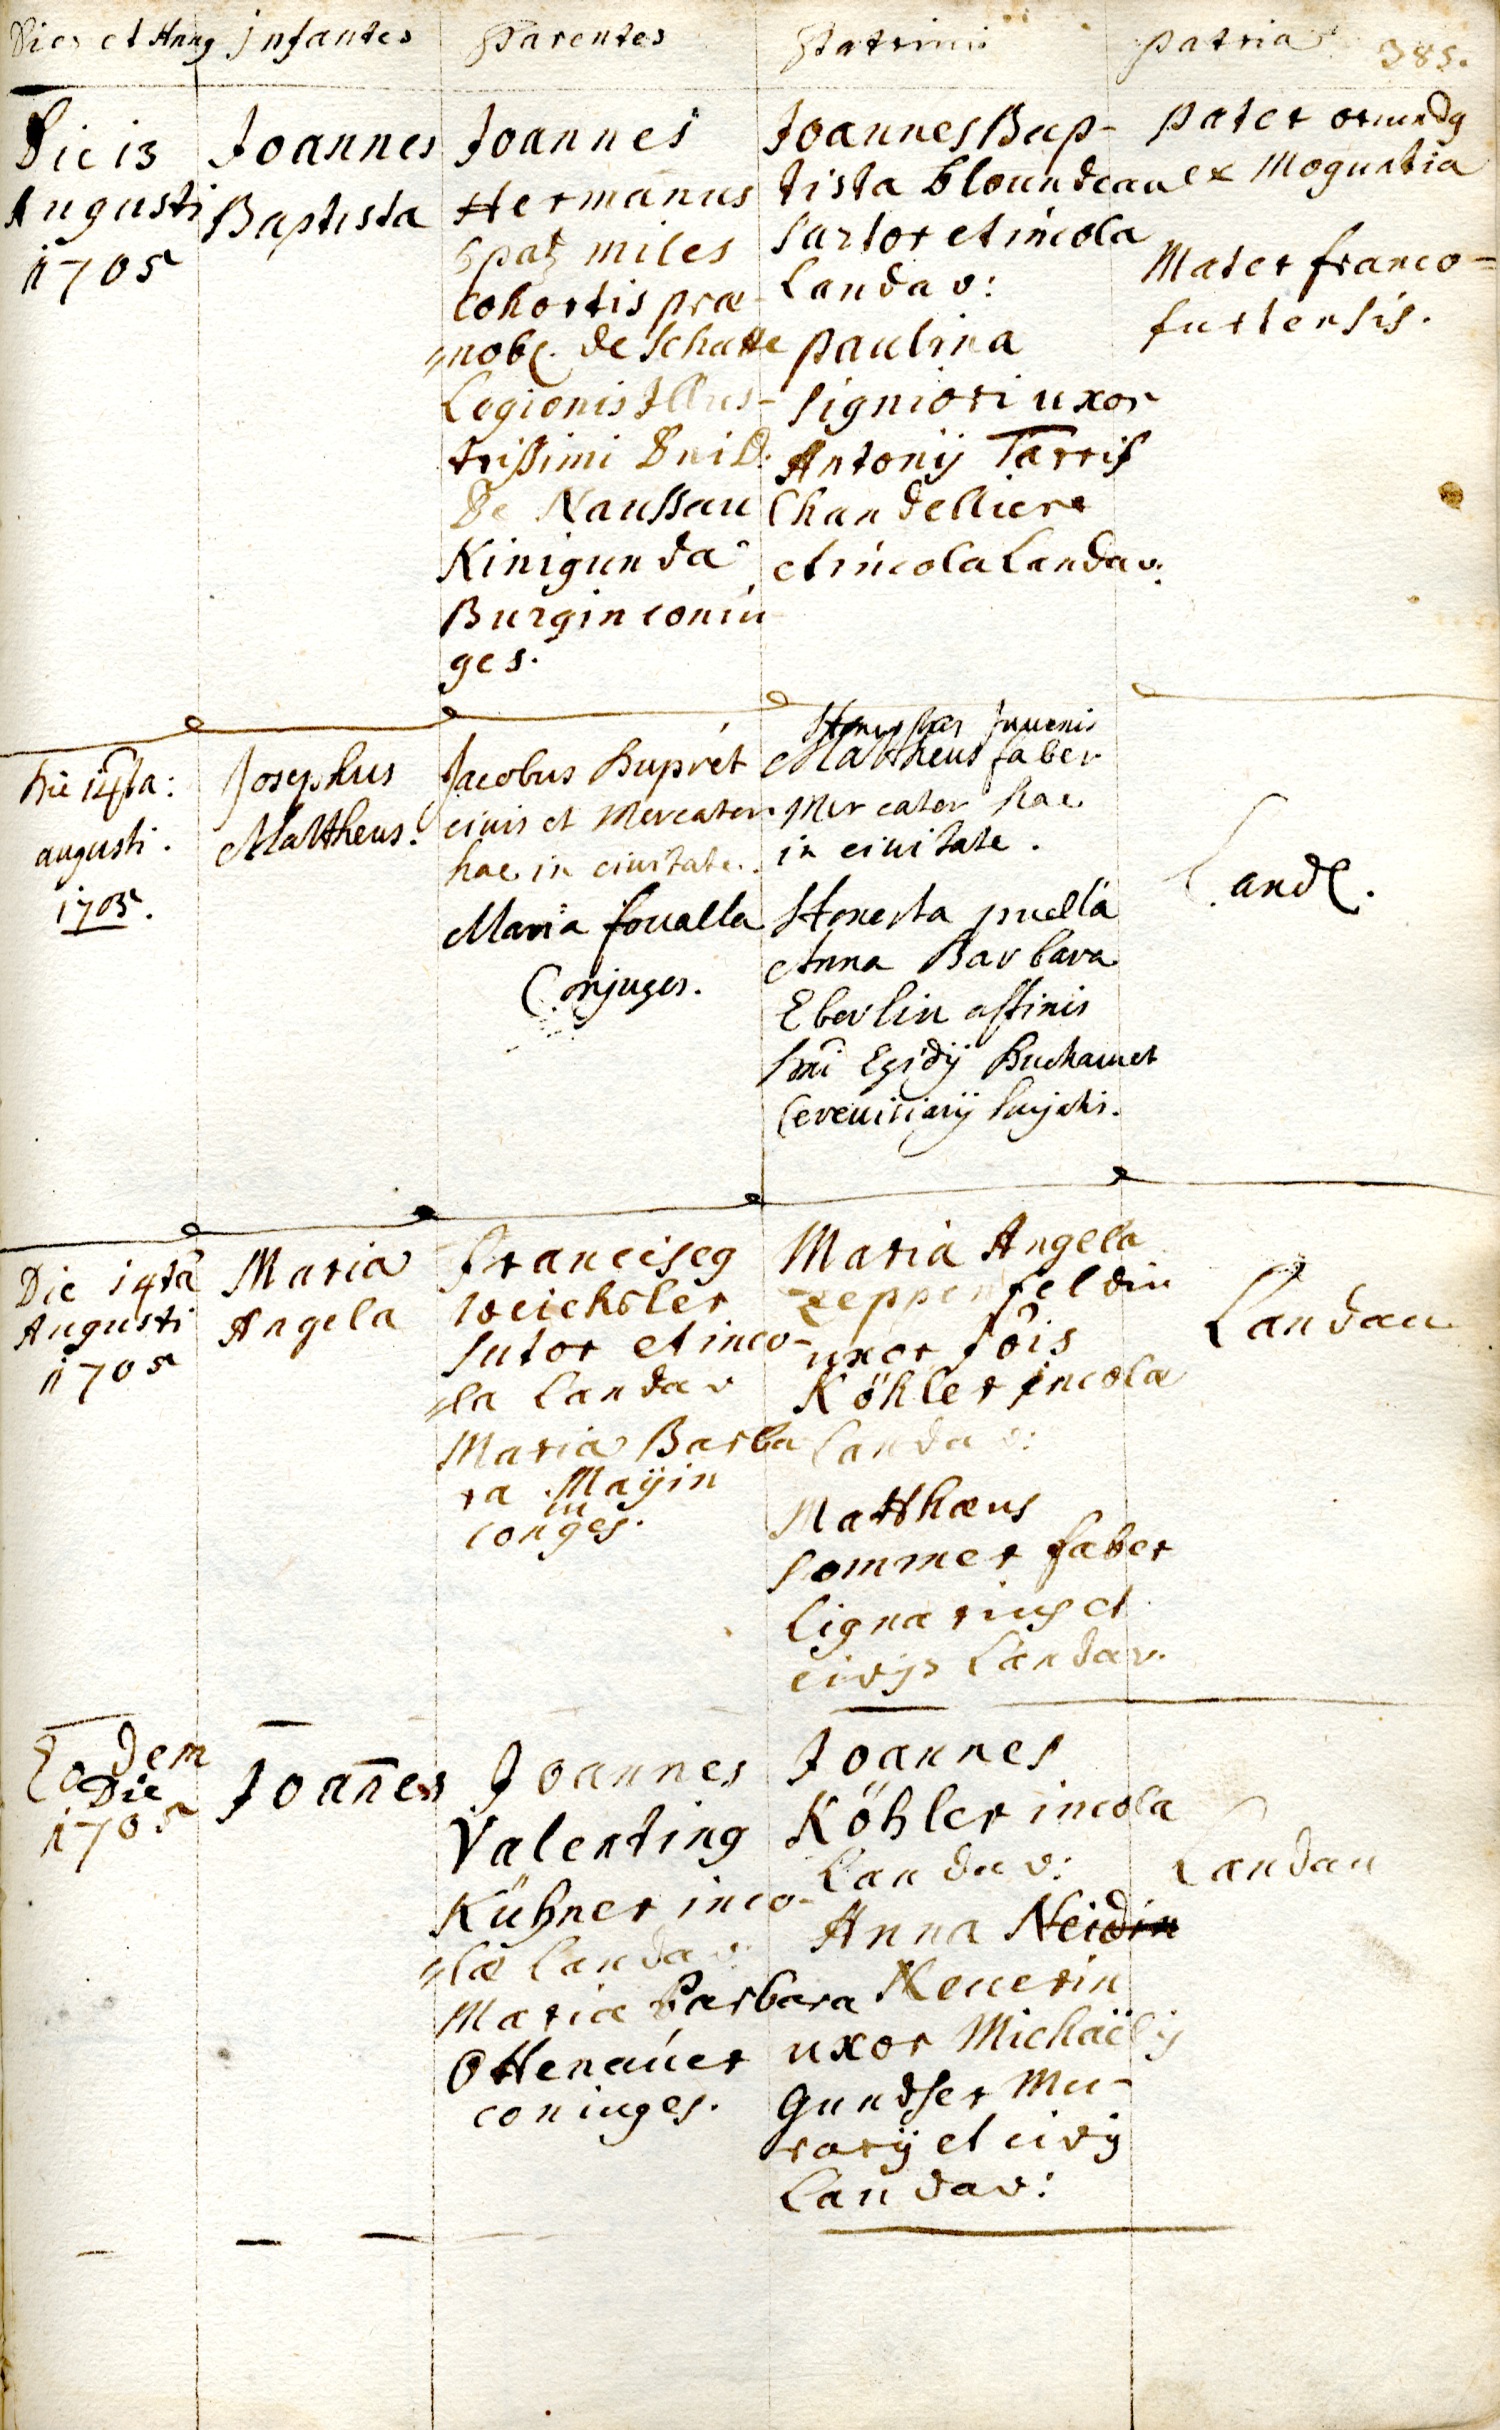 Dies et Annus
Infantes
Parentes
Patrini
Patria
385.
Die 13
Augusti
1705
Joannes
Baptista
Joannes
Hermannus
Spatz miles
cohortis præ-
nob. de Schatte
Legionis Illus-
trissimi Dni D.
De Naussau
Kinigunda
Burgin coniu-
ges.
Joannes Bap-
tista bloundeau
sartor et incola
Landav:
Paulina
signiori uxor
Antonij Tarris
Chandelliere
et incola Landav:
Pater oriundus
ex Moguntia
Mater franco-
furtensis.
Die 14ta:
augusti.
1705.
Josephus
Mattheus.
Jacobus Duprét
civis et Mercator
hac in civitate.
Maria foualla
Conjuges.
Honestus Juvenis
Mattheus faber
Mercator hac
in civitate.
Honesta puella
Anna Barbara
Eberlin affinis
Dni Egidij
Cerevisiarij hujatis.
Land.
Die 14ta
Augusti
1705
Maria
Angela
Franciscus
Weichsler
sutor et inco-
la Landav
Maria Barba
ra Mayin
coniuges.
Maria Angela
Zeppenfeldin
uxor Jois
Köhler incola
Landav:
Matthæus
Sommer faber
lignarius et
civis Landav.
Landau
Eodem
Die
1705
Joanes
Joannes
Valentinus
Kühner inco-
la Landav:
Maria Barbara
Ottenauer
coniuges.
Joannes
Köhler incola
Landav:
Anna Neidin
Neuerin
uxor Michaëlis
Gundser Mu-
rarij et civis
Landav:
Landau